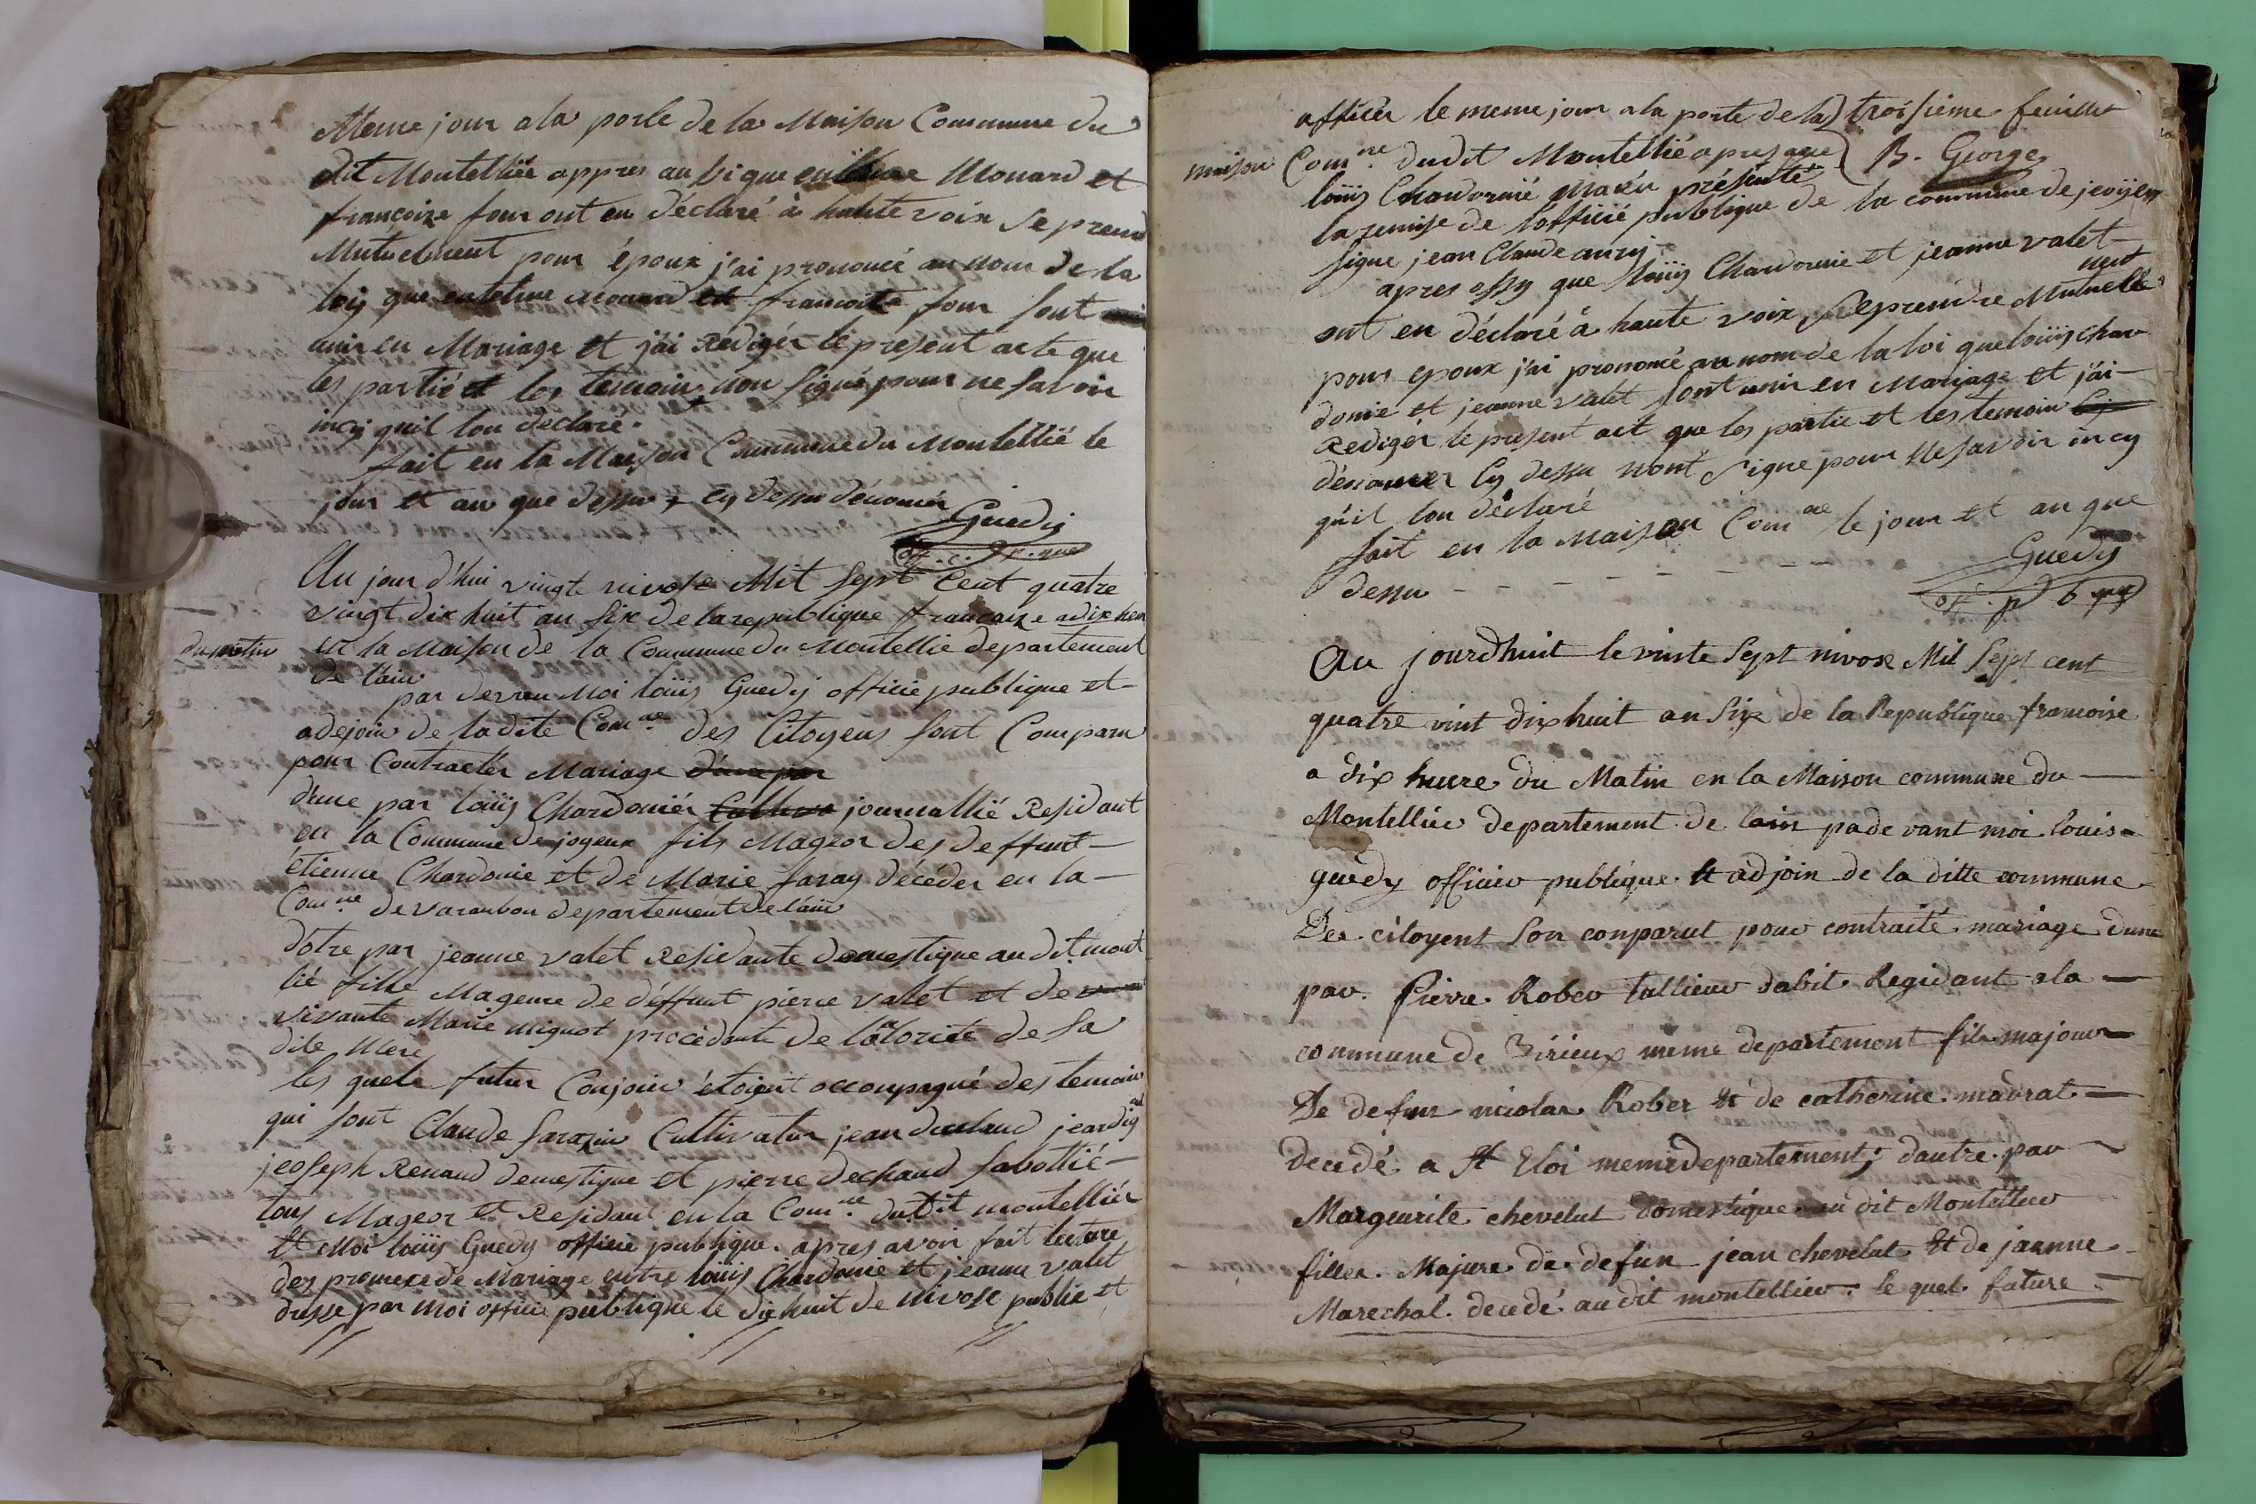 Meme jour a la porte de la Maison Commune du
dit Montelliée appres au si que Mouard et
francoise four ont en déclaré à haute voix Se prend
Mutuelment pour époux j'ai prononcé au nom de la
loy que Mouard et francoise four sont
unir en Mariage et j'ai Redigér le present acte que
les partié et les temoin non signé pour ne savoir
incy quil lon déclaré.
fait en la Maison Commune du Montellié le
jour et an que dessu + cy dessu dénomér
Guedy
off. c. p. que
Au jour d'hui vingt nivose Mil sept Cent quatre
vingt dix huit an Six de la republique francoize a dix heu
du matin
en la Maison de la Commune du Montellie departement
de l'ain
par devren Moi loüis Guedy officie publique et
adejoin de la dite Com.ne des Citoyens sont Comparu
pour Contracter Mariage d'une par
d'une par loüis Chardoniér journallié Residant
en la Commune de joyeux fils Mageor des deffunt
étienne Chardonie et de Marie faray décéder en la
Com.ne de varanbon departement de l'ain
d'otre par jeanne valet Residante domestique au dit mont
lié fille Mageure de déffunt pierre valet et de
vivante Marie mignot procédante de lotorité de sa
dite Mere
les quele futur Conjoin étoient accompagné des temoin
qui sont Claude sarazin Cultivateur jean jeardig
jeoseph Renaud domestique et pierre dechaud sabottié
tous Mageor et Residant en la Com.ne du dit montelliér
Et Moi loüis Guedy officie publique. apres avoir fait lecture
des promece de Mariage entre loüis Chardonie et jeanne valet
dresse par moi officie publique le dix huit de nivose publié et
afficér le meme jour a la porte de la
troisieme feuillet
maison Com.ne du dit Montellié apres que
B. George
loüis Chardonnié Marén présenté
la remise de lofficié publique de la commune de jeoyeu
signe jean Claude
apres assy que loüis Chardonie et jeanne valet
ont en déclaré à haute voix Se prendre Mutuelle
ment
pour epoux j'ai prononcé au nom de la loi que loüis char
donie et jeanne valet sont unir en Mariage et j'ai
Redigér le present act que les partie et les temoin Cy
dénomer Cy dessu nont signe pour Ne savoir in cy
quil lon déclaré
fait en la Maison Com.ne le jour et an que
dessu
Guedy
off. p b que
Au jourdhuit le vinte Sept nivose Mil Sept cent
quatre vint dix huit an Six de la Republique francoise
a dix heure du Matin en la Maison commune du
Montellier departement de lain pade vant moi louis
guedy officier publique et adjoin de la ditte commune
Des citoyent Son conparut pour contraité mariage dune
par. Pierre Rober tallieur dabit Regidant a la
commune de Birieux meme departement fils majour
De defun nicolas Rober et de catherine mavrat
decedé a St Eloi meme departement; dautre par
Margeurite chevelut domestique au dit Montellier
filler Majure de defun jean chevelut Et de jeanne
Marechal. decedé au dit montellier. le quel future